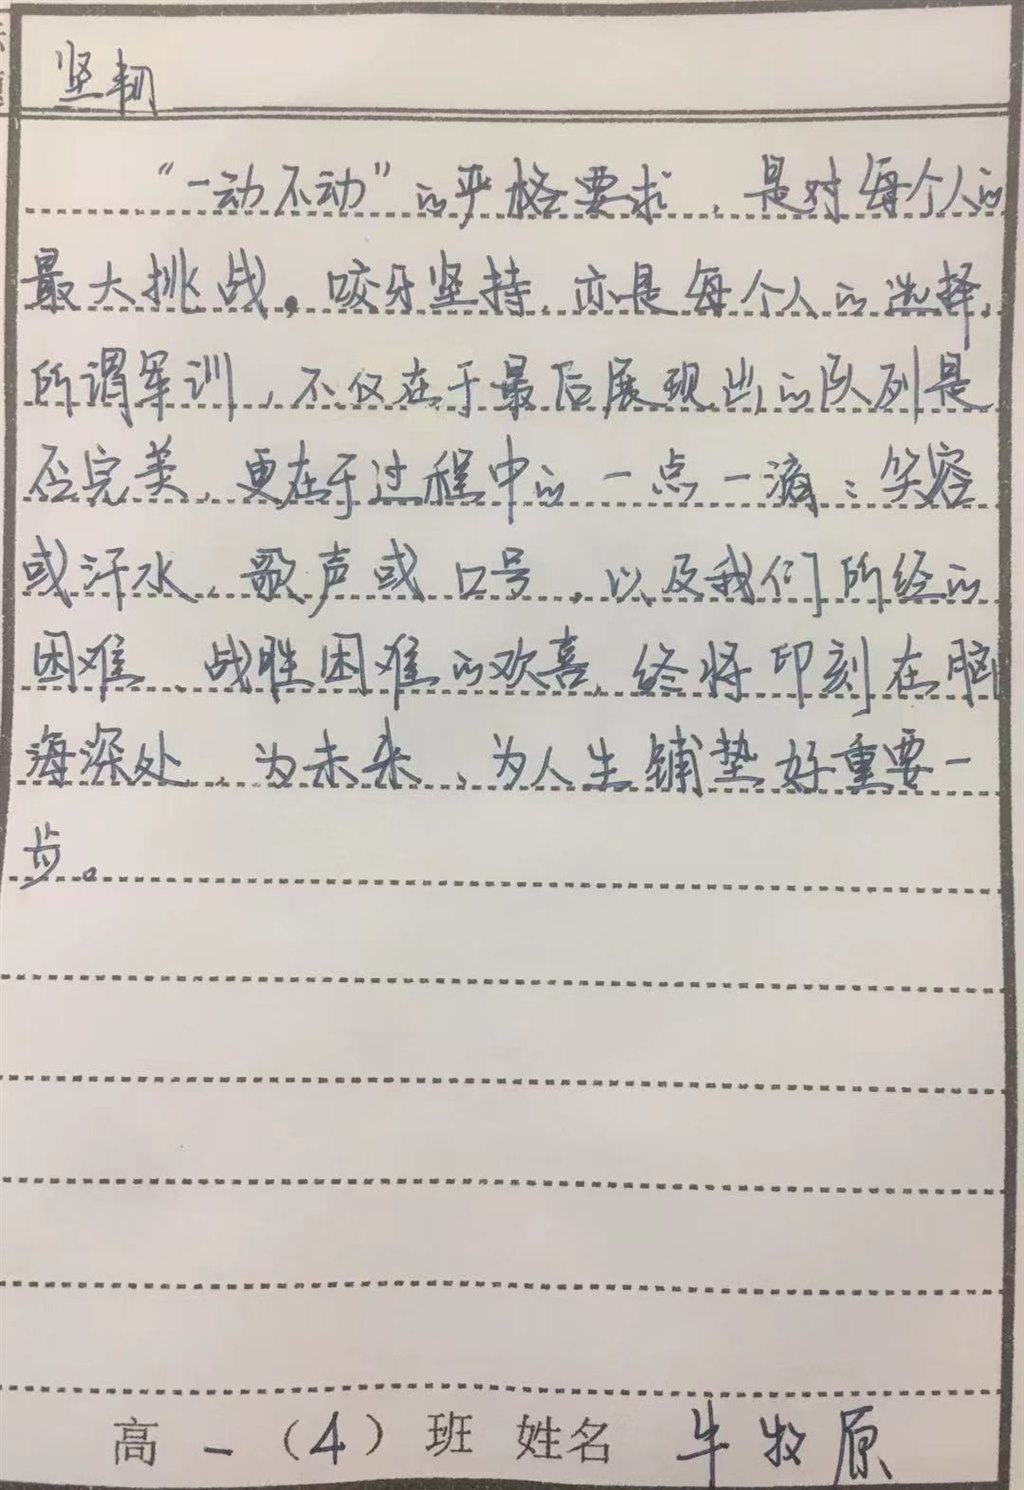 坚韧
“一动不动”的严格要求，是对每个人的
最大挑战。咬牙坚持，亦是每个人的选择，
所谓军训，不仅在于最后展现出的队列是
否完美，更在于过程中的一点一滴：笑容
或汗水，歌声或口号，以及我们所经的
困难、战胜困难的欢喜，终将印刻在脑
海深处，为未来，为人生铺垫好重要一
步。
高一（4）班 姓名 牛牧原